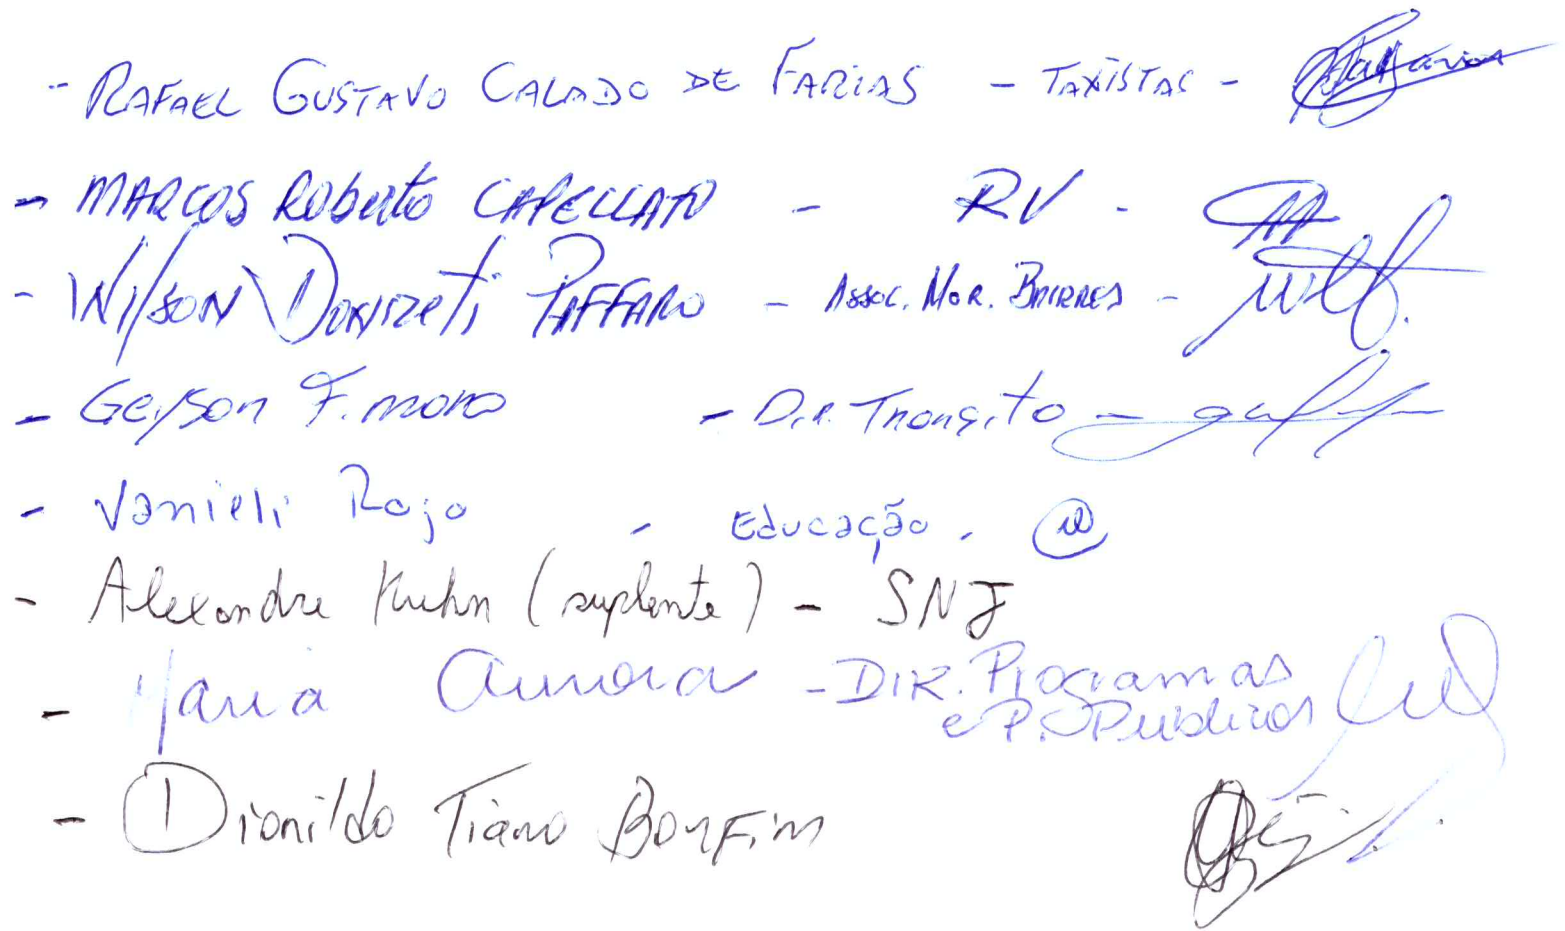 - RAFAEL GUSTAVO CALADO DE FARIAS - TAXISTAS -
- MARCOS ROBERTO CAPELLATO - RV -
- Wilson Donizeti PAFFARO - Assoc. Mor. BAIRROS -
- Geyson F. moro - Dir. Transito -
- Vanieli Rojo - Educação -
- Alexandre Kuhn (suplente) - SNJ
- Maria Aurora - DIR. Programas
e P. Publicos
- Dionildo Tiano Bonfim